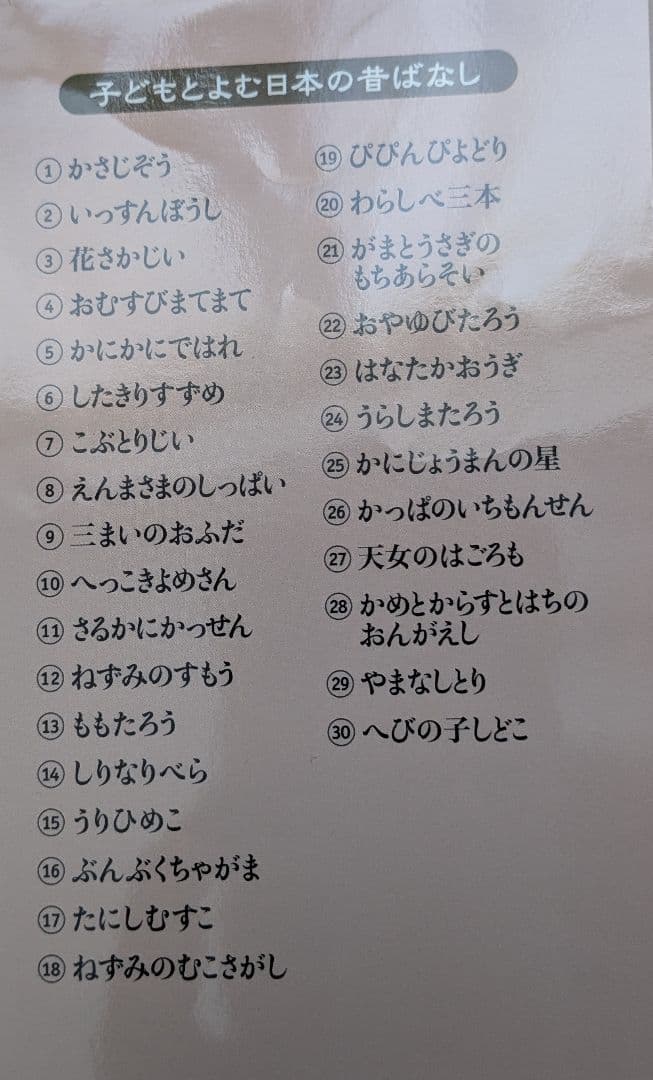 子どもとよむ日本の昔ばなし
① かさじぞう
② いっすんぼうし
③ 花さかじい
④ おむすびまてまて
⑤ かにかにではれ
⑥ したきりすずめ
⑦ こぶとりじい
⑧ えんまさまのしっぱい
⑨ 三まいのおふだ
⑩ へっこきよめさん
⑪ さるかにかっせん
⑫ ねずみのすもう
⑬ ももたろう
⑭ しりなりべら
⑮ うりひめこ
⑯ ぶんぶくちゃがま
⑰ たにしむすこ
⑱ ねずみのむこさがし
⑲ ぴぴんぴよどり
⑳ わらしべ三本
㉑ がまとうさぎの
もちあらそい
㉒ おやゆびたろう
㉓ はなたかおうぎ
㉔ うらしまたろう
㉕ かにじょうまんの星
㉖ かっぱのいちもんせん
㉗ 天女のはごろも
㉘ かめとからすとはちの
おんがえし
㉙ やまなしとり
㉚ へびの子しどこ